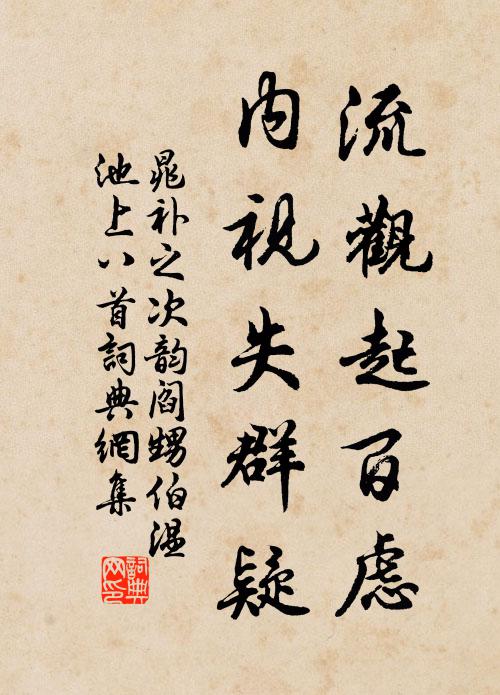 流觀起百慮
內視失群疑
晁补之次韵閻甥伯溫
池上八首詞典網集
詞典網印